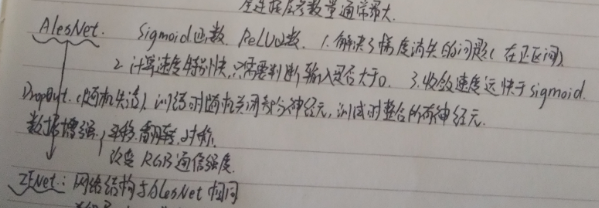 全连接层参数量通常很大.
AlesNet. Sigmoid函数 ReLU函数. 1.解决了梯度消失的问题(在正区间)
2.计算速度特别快,只需要判断输入是否大于0. 3.收敛速度远快于sigmoid.
DropOut.(随机失活) 训练时随机关闭部分神经元,测试时整合所有神经元.
数据增强, 平移.翻转.对称.
改变RGB通信强度.
ZFNet: 网络结构与AlesNet相同